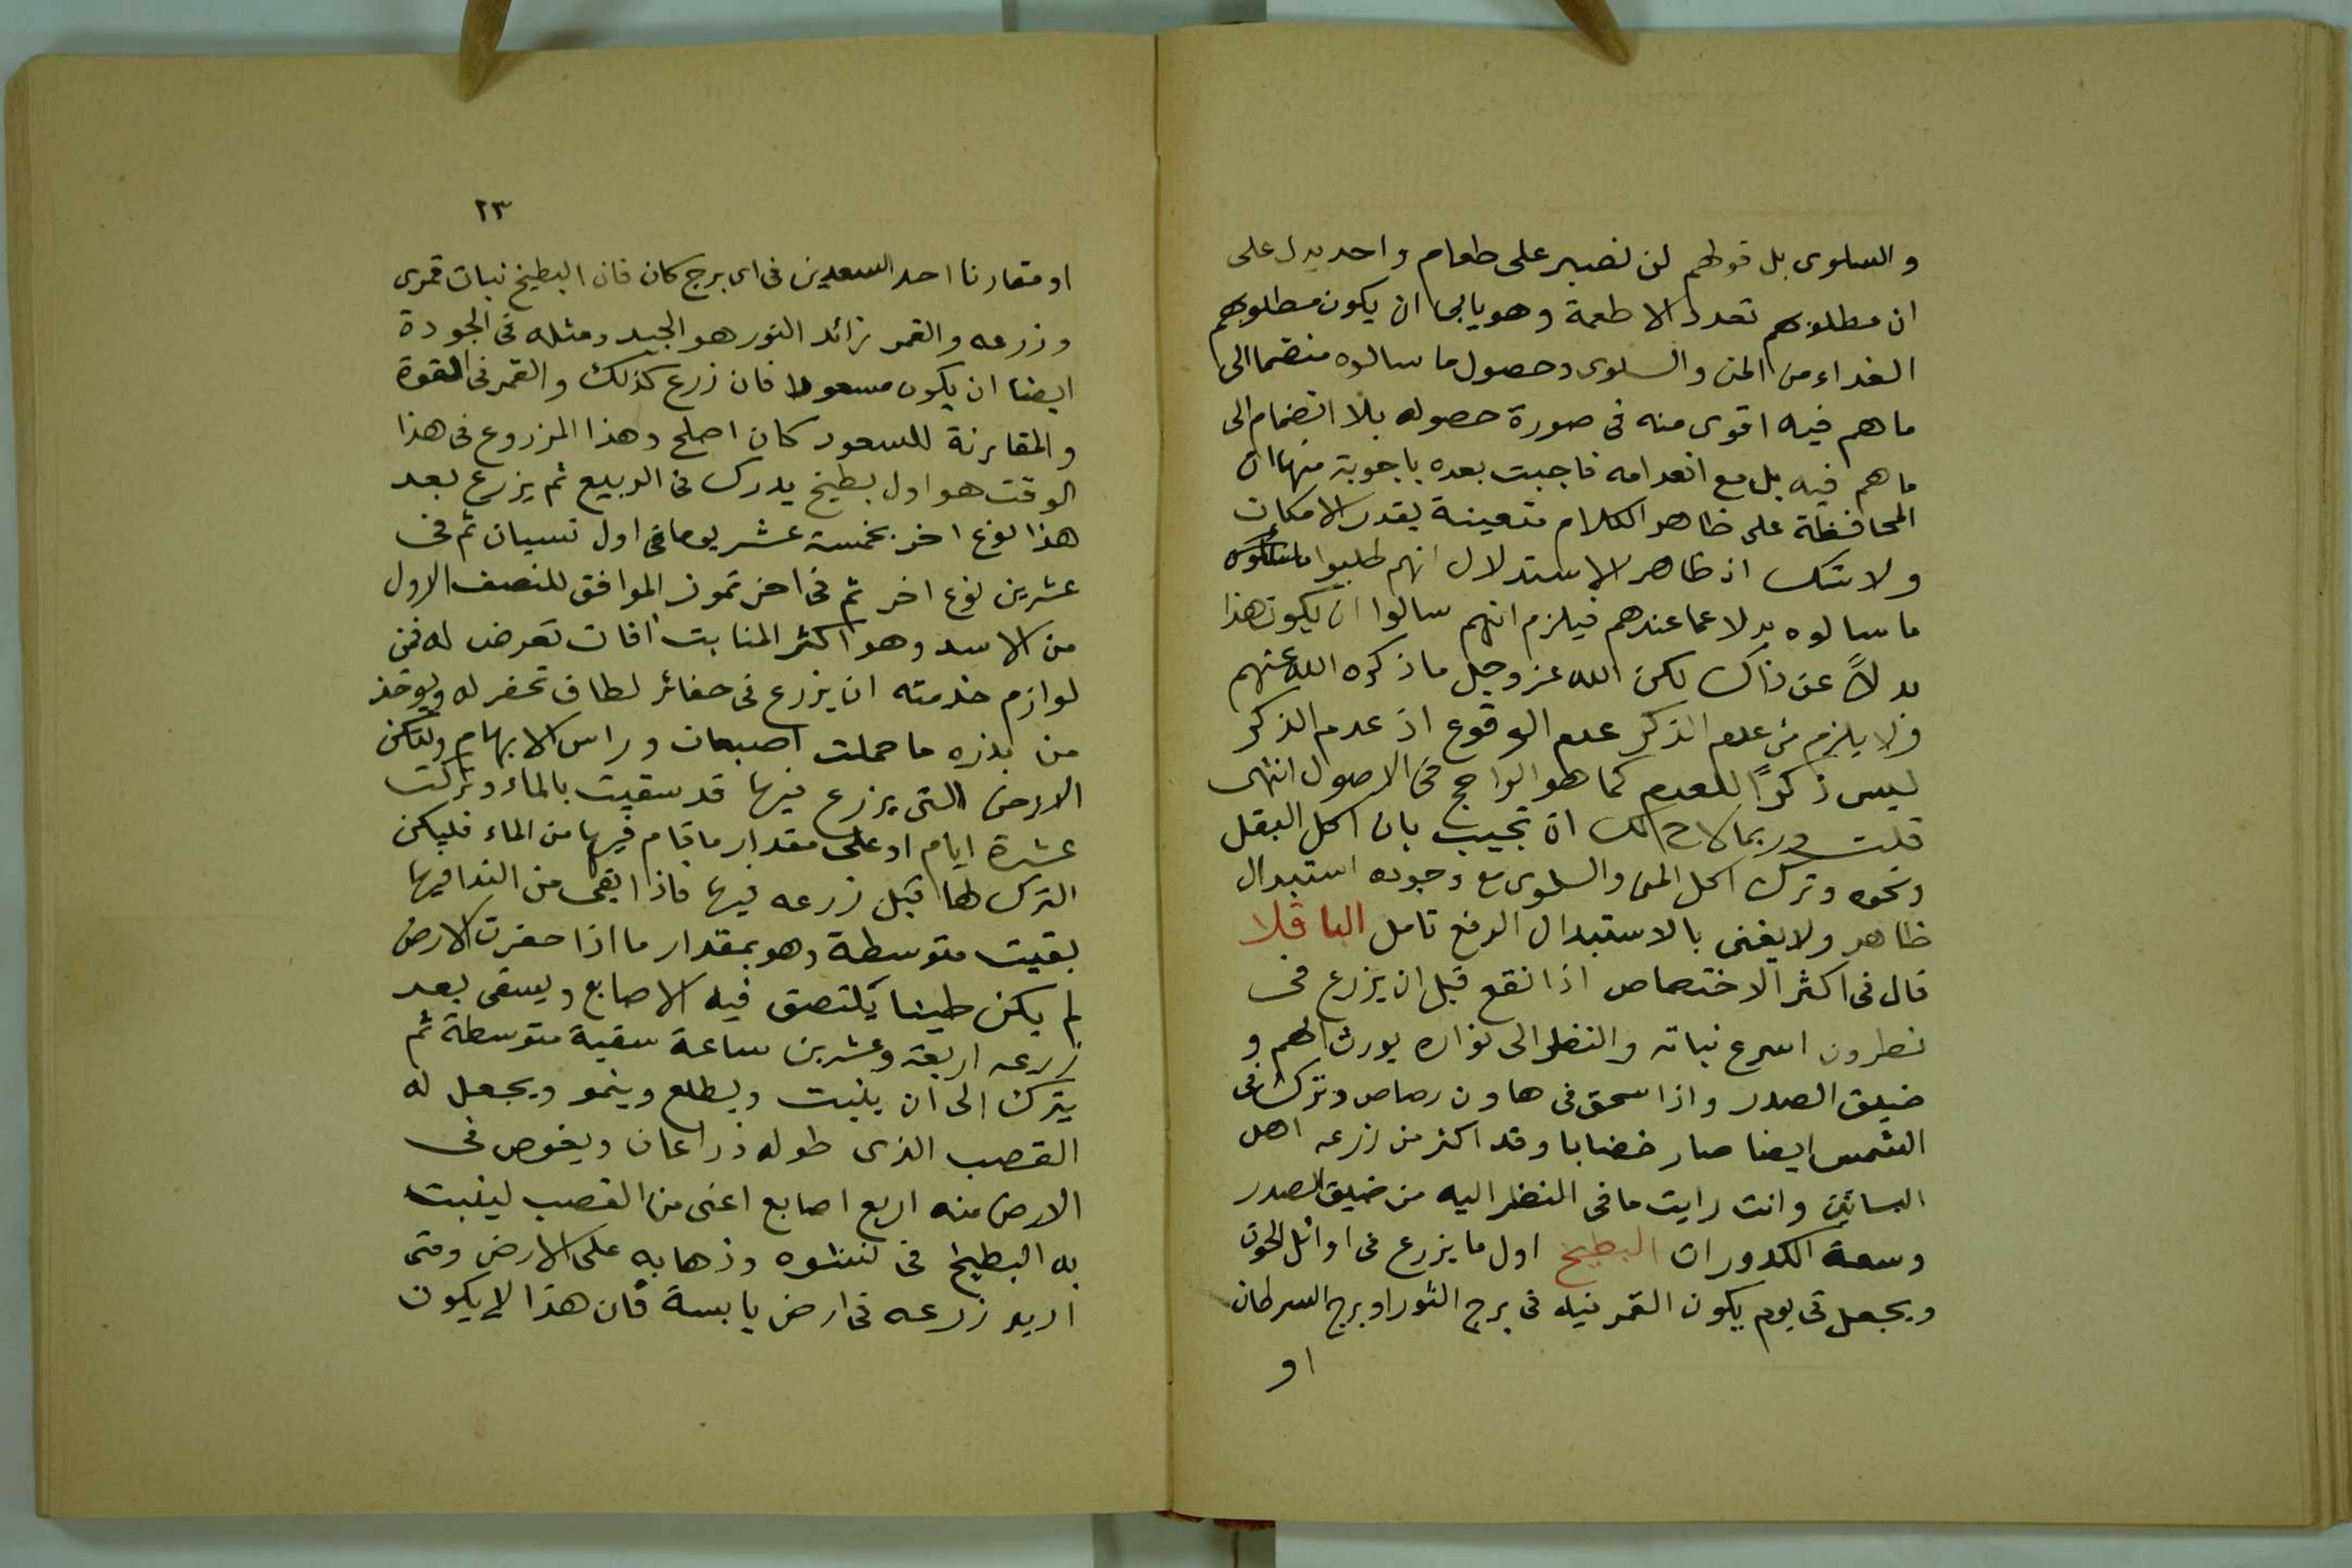 والسلوى بل قولهم لن نصبر على طعام واحد يدل على
ان مطلوبهم تعدد الاطعمة وهو يابى ان يكون مطلوبهم
الغداء من المن والسلوى وحصول ما سالوه منضما الى
ما هم فيه اقوى منه فى صورة حصوله بلا انضمام الى
ما هم فيه بل مع انعدامه فاجبت بعده باجوبة منها ان
المحافظة على ظاهر الكلام متعينة بقدر الامكان
ولا شك اذ ظاهر الاستدلال انهم طلبوا
ما سالوه بدلا عما عندهم فيلزم انهم سالوا ان يكون هذا
بدلاً عن ذاك لكن الله عز وجل ما ذكره الله عنهم
ولا يلزم من عدم الذكر عدم الوقوع اذ عدم الذكر
ليس ذكراً للعدم كما هو الراجح فى الاصول انتهى
قلت وربما لاح لك ان تجيب بان اكل البقل
ونحوه وترك اكل المن والسلوى مع وجوده استبدال
ظاهر ولا يغنى بالاستبدال الرفع تامل الباقلا
قال فى اكثر الاختصاص اذا نقع قبل ان يزرع فى
نطرون اسرع نباته والنظر الى نواره يورث الهم و
ضيق الصدر واذا سحق فى هاون رصاص وترك فى
الشمس ايضا صار خضابا وقد اكثر من زرعه اهل
البساتين وانت رايت ما فى النظر اليه من ضيق الصدر
وسعة الكدورات البطيخ اول ما يزرع فى اوائل الحوت
ويجعل فى يوم يكون القمر فيه فى برج الثور او برج السرطان
او
٢٣
او مقارنا احد السعدين فى اى برج كان فان البطيخ نبات قمرى
وزرعه والقمر زائد النور هو الجيد ومثله فى الجودة
ايضا ان يكون مسعودا فان زرع كذلك والقمر فى القوة
والمقارنة للسعود كان اصلح وهذا المزروع فى هذا
الوقت هو اول بطيخ يدرك فى الربيع ثم يزرع بعد
هذا نوع اخر بخمسة عشر يوما فى اول نسيان ثم فى
عشرين نوع اخر ثم فى اخر تموز الموافق للنصف الاول
من الاسد وهو اكثر المنابت افات تعرض له فمن
لوازم خدمته ان يزرع فى حفائر لطاف تحفر له ويوخذ
من بذره ما حملت اصبعان وراس الابهام ولتكن
الارض التى يزرع فيها قد سقيت بالماء وتركت
عشرة ايام او على مقدار ما قام فيها من الماء فليكن
الترك لها قبل زرعه فيها فاذا بقى من الندا فيها
بقيت متوسطة وهو بمقدار ما اذا حفرت الارض
لم يكن طينا يلتصق فيه الاصابع ويسقى بعد
زرعه اربعة وعشرين ساعة سقية متوسطة ثم
يترك الى ان ينبت ويطلع وينمو ويجعل له
القصب الذى طوله ذراعان ويغوص فى
الارض منه اربع اصابع اعنى من القصب لينبت
به البطيخ فى نشوه وذهابه على الارض ومتى
اريد زرعه فى ارض يابسة فان هذا لا يكون